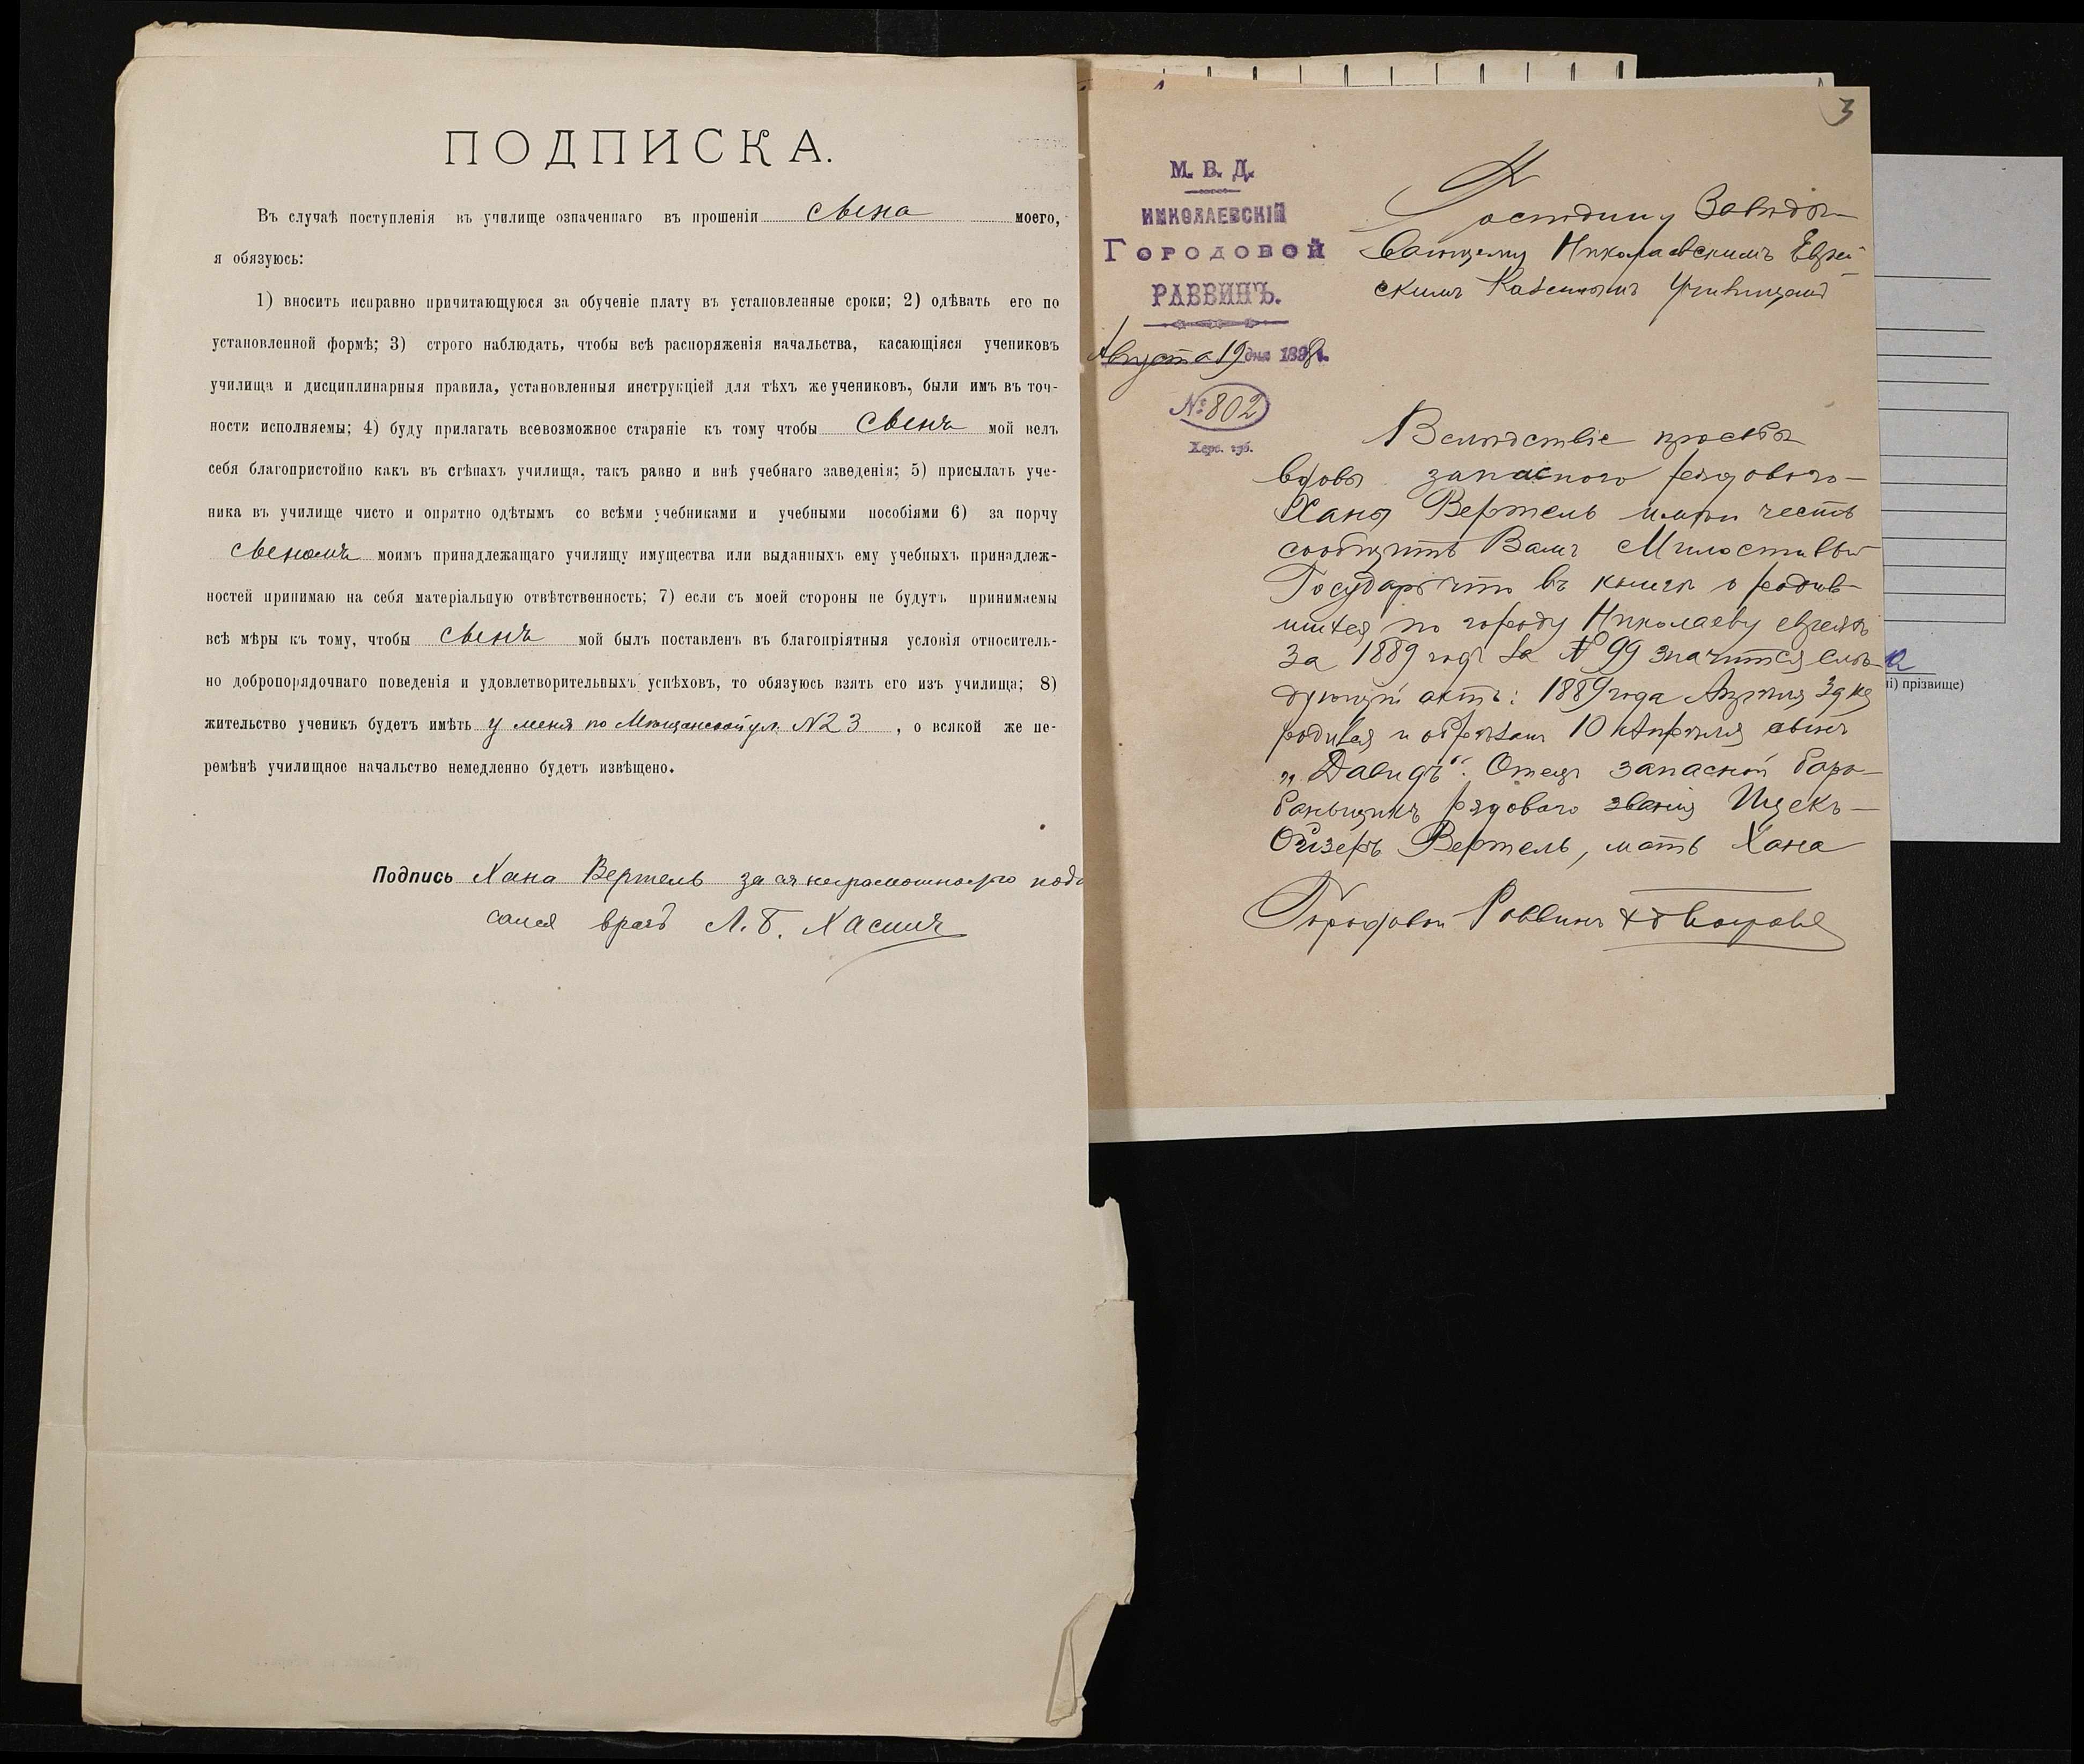 ПОДПИСКА.
Въ случаѣ поступленія въ училище означеннаго въ прошеніи сына моего,
я обязуюсь:
1) вносить исправно причитающуюся за обученіе плату въ установленные сроки; 2) одѣвать его по
установленной формѣ; 3) строго наблюдать, чтобы всѣ распоряженія начальства, касающіяся учениковъ
училища и дисциплинарныя правила, установленныя инструкціей для тѣхъ же учениковъ, были имъ въ точ-
ности исполняемы; 4) буду прилагать всевозможное стараніе къ тому чтобы сынъ мой велъ
себя благопристойно какъ въ стѣнахъ училища, такъ равно и внѣ учебнаго заведенія; 5) присылать уче-
ника въ училище чисто и опрятно одѣтымъ со всѣми учебниками и учебными пособіями 6) за порчу
сыномъ моимъ принадлежащаго училищу имущества или выданныхъ ему учебныхъ принадлеж-
ностей принимаю на себя матеріальную отвѣтственность; 7) если съ моей стороны не будутъ принимаемы
всѣ мѣры къ тому, чтобы сынъ мой былъ поставленъ въ благопріятныя условія относитель-
но добропорядочнаго поведенія и удовлетворительныхъ успѣховъ, то обязуюсь взять его изъ училища; 8)
жительство ученикъ будетъ имѣть у меня по Мѣщанской ул. №23, о всякой же пе-
ремѣнѣ училищное начальство немедленно будетъ извѣщено.
Подпись Хана Вертель за ея неграмотностью
врачъ Л. Б. Хасинъ
3
М. В. Д.
НИКОЛАЕВСКІЙ
ГОРОДОВОЙ
РАВВИНЪ.
Августа 19 дня 1898 г.
№ 802
Херс. губ.
Господину Завѣды-
вающему Николаевскимъ Еврей-
скимъ Казеннымъ Училищемъ
Вслѣдствіе просьбы
вдовы запаснаго рядового
Ханы Вертель имѣю честь
сообщить Вамъ Милостивый
Государь что въ книгѣ о родив-
шихся по городу Николаеву евреяхъ
за 1889 годъ за №99 значится слѣ-
дующій актъ: 1889 года Апрѣля 3 дня
родился и обрѣзанъ 10 Апрѣля сынъ
„Давидъ“. Отецъ запасной бара-
банщикъ рядового званія Ицекъ-
Ойзеръ Вертель, мать Хана
Городовой Раввинъ
ні) прізвище)